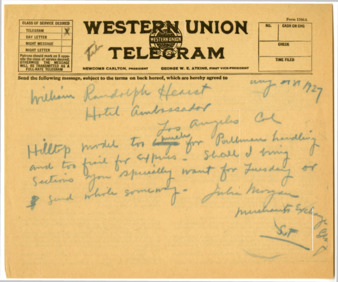 Form 1206A
CLASS OF SERVICE DESIRED
TELEGRAM X
DAY LETTER
NIGHT MESSAGE
NIGHT LETTER
WESTERN UNION
WESTERN UNION
TELEGRAM
NEWCOMB CARLTON, PRESIDENT
GEORGE W. E. ATKINS, FIRST VICE-PRESIDENT
NO.
CASH OR CHG.
CHECK
TIME FILED
Send the following message, subject to the terms on back hereof, which are hereby agreed to
Aug 1927
William Randolph Hearst
Hotel Ambassador
Los Angeles Cal
Hilltop model too for Pullman handling
and too frail for express. Shall I bring
sections you specially want for Tuesday or
send whole someway.
Julia Morgan
Merchants Exchange